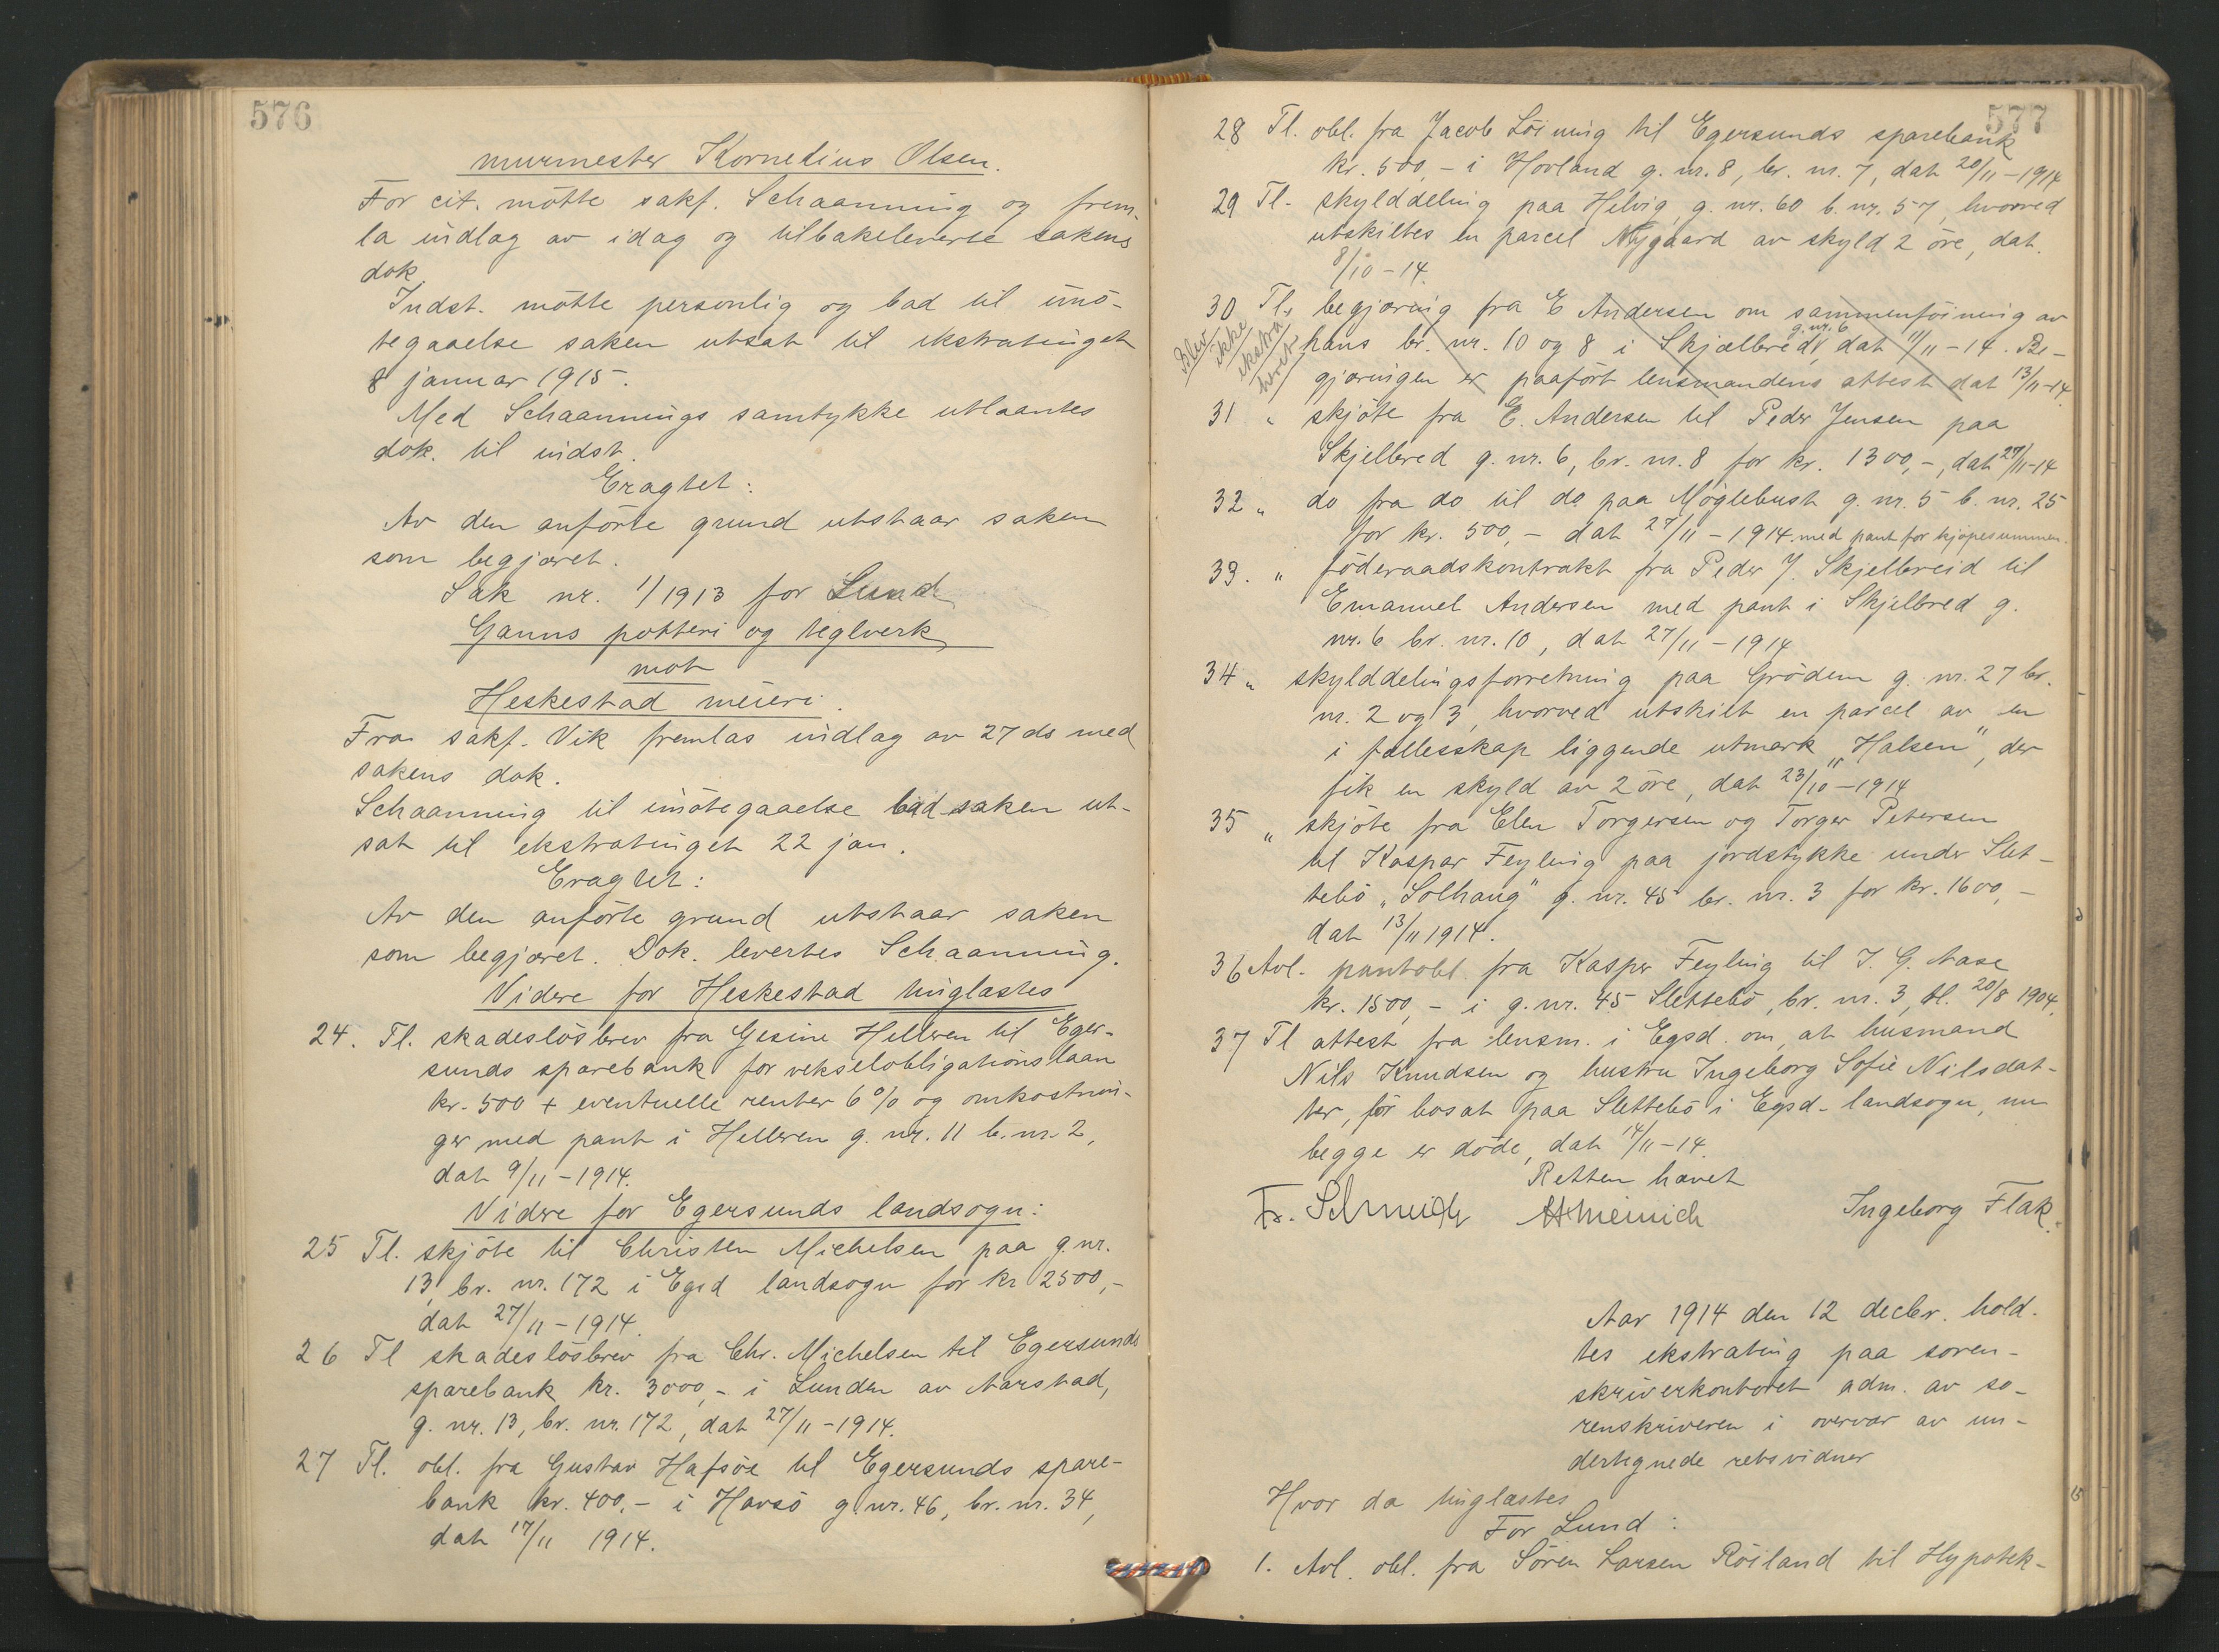 576
murmester Kornelius Olsen.
For cit. mötte sakf. Schaanning og frem-
la indlag av idag og tilbakeleverte sakens
dok.
Indst. mötte personlig og bad til imö-
tegaaelse saken utsat til ekstratinget
8 januar 1915.
Med Schaannings samtykke utlaantes
dok. til indst.
Eragtet:
Av den anförte grund utstaar saken
som begjæret.
Sak nr. 1/1913 for Lund
Ganns potteri og teglverk
mot
Heskestad meieri.
Fra sakf. Vik fremlas indlag av 27 ds med
sakens dok.
Schaanning til imötegaaelse bad saken ut-
sat til ekstratinget 22 jan.
Eragtet:
Av den anförte grund utstaar saken
som begjæret. Dok. levertes Schaanning.
Videre for Heskestad tinglæstes
24. Tl. skadeslösbrev fra Gesine Helleren til Eger-
sunds sparebank for vekselobligationslaan
kr. 500 + eventuelle renter 6% og omkostnin-
ger med pant i Helleren g. nr. 11 b. nr. 2,
dat 9/11-1914.
Videre for Egersunds landsogn:
25 Tl. skjöte til Christen Michelsen paa g. nr.
13, br. nr. 172 i Egsd landsogn for kr 2500,-
dat 27/11-1914.
26 Tl skadeslösbrev fra Chr. Michelsen til Egersunds
sparebank kr. 3000,- i Lunden av Aarstad,
g. nr. 13, br. nr. 172, dat 27/11-1914.
27 Tl. obl. fra Gustav Hafsöe til Egersunds spare-
bank kr. 400,- i Havsö g. nr. 46, br. nr. 34,
dat 17/11 1914.
577
28 Tl. obl. fra Jacob Löining til Egersunds sparebank
kr. 500,- i Hovland g. nr. 8, br. nr. 7, dat 20/11-1914
29 Tl. skylddeling paa Helvig, g. nr. 60 b. nr. 57, hvorved
utskiltes en parcel Nygaard av skyld 2 öre, dat.
8/10-14.
30 Tl. begjæring fra E Andersen om sammenföining av
hans br. nr. 10 og 8 i Skjælbred, g. nr. 6 dat 11/11-14. Be-
gjæringen er paafört lensmandens attest dat 13/11-14.
Blev
ikke
ekstra
31 " skjöte fra E. Andersen til Peder Jensen paa
Skjelbred g. nr. 6, br. nr. 8 for kr. 1300,-, dat 27/11-14
32 " do fra do til do paa Möglebust g. nr. 5 b. nr. 25
for kr. 500,- dat 27/11-1914. med pant for kjøpesummen.
33. " föderaadskontrakt fra Peder J. Skjelbreid til
Emanuel Andersen med pant i Skjelbred g.
nr. 6 br. nr. 10, dat 27/11-1914
34 " skylddelingsforretning paa Grödem g. nr. 27 br.
nr. 2 og 3, hvorved utskilt en parcel av en
i fællesskap liggende utmark „Halsen", der
fik en skyld av 2 öre, dat 23/10-1914
35 " skjöte fra Elen Torgersen og Torger Petersen
til Kaspar Feyling paa jordstykke under Slet-
tebö „Solhaug" g. nr. 45 br. nr. 3 for kr. 1600,-
dat 13/11 1914.
36 Avl. pantobl. fra Kasper Feyling til J. G. Aase
kr. 1500,- i g. nr. 45 Slettebö, br. nr. 3, tl. 20/8 1904.
37 Tl attest fra lensm. i Egsd. om, at husmand
Nils Knudsen og hustru Ingeborg Sofie Nilsdat-
ter, för bosat paa Slettebö i Egsd- landsogn, nu
begge er döde, dat 14/11-14.
Retten hævet
Fr. Schmidt Ingeborg Flak.
Aar 1914 den 12 decbr. hold-
tes ekstrating paa soren-
skriverkontoret adm. av so-
renskriveren i overvær av un-
dertegnede retsvidner
Hvor da tinglæstes
For Lund:
1. Avl. obl. fra Sören Larsen Röiland til Hypotek-